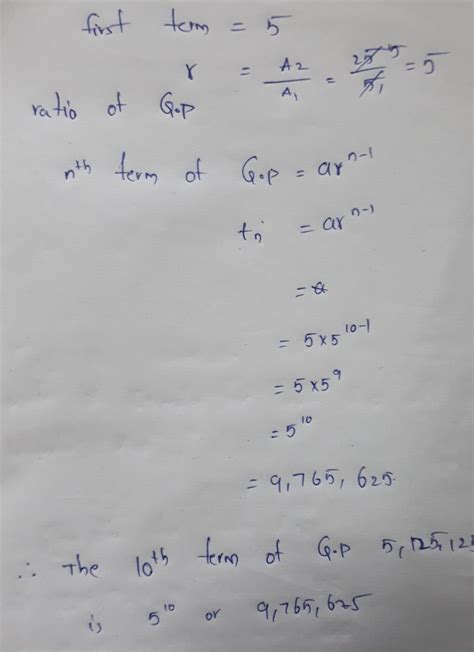 first term = 5
r = A2/A1 = 25 5/5 1 = 5
ratio of G.P
nth term of G.P = ar^n-1
tn = ar^n-1
= a
= 5×5^10-1
= 5×5^9
= 5^10
= 9,765,625
∴ The 10th term of G.P 5, 125, 12
is 5^10 or 9,765,625